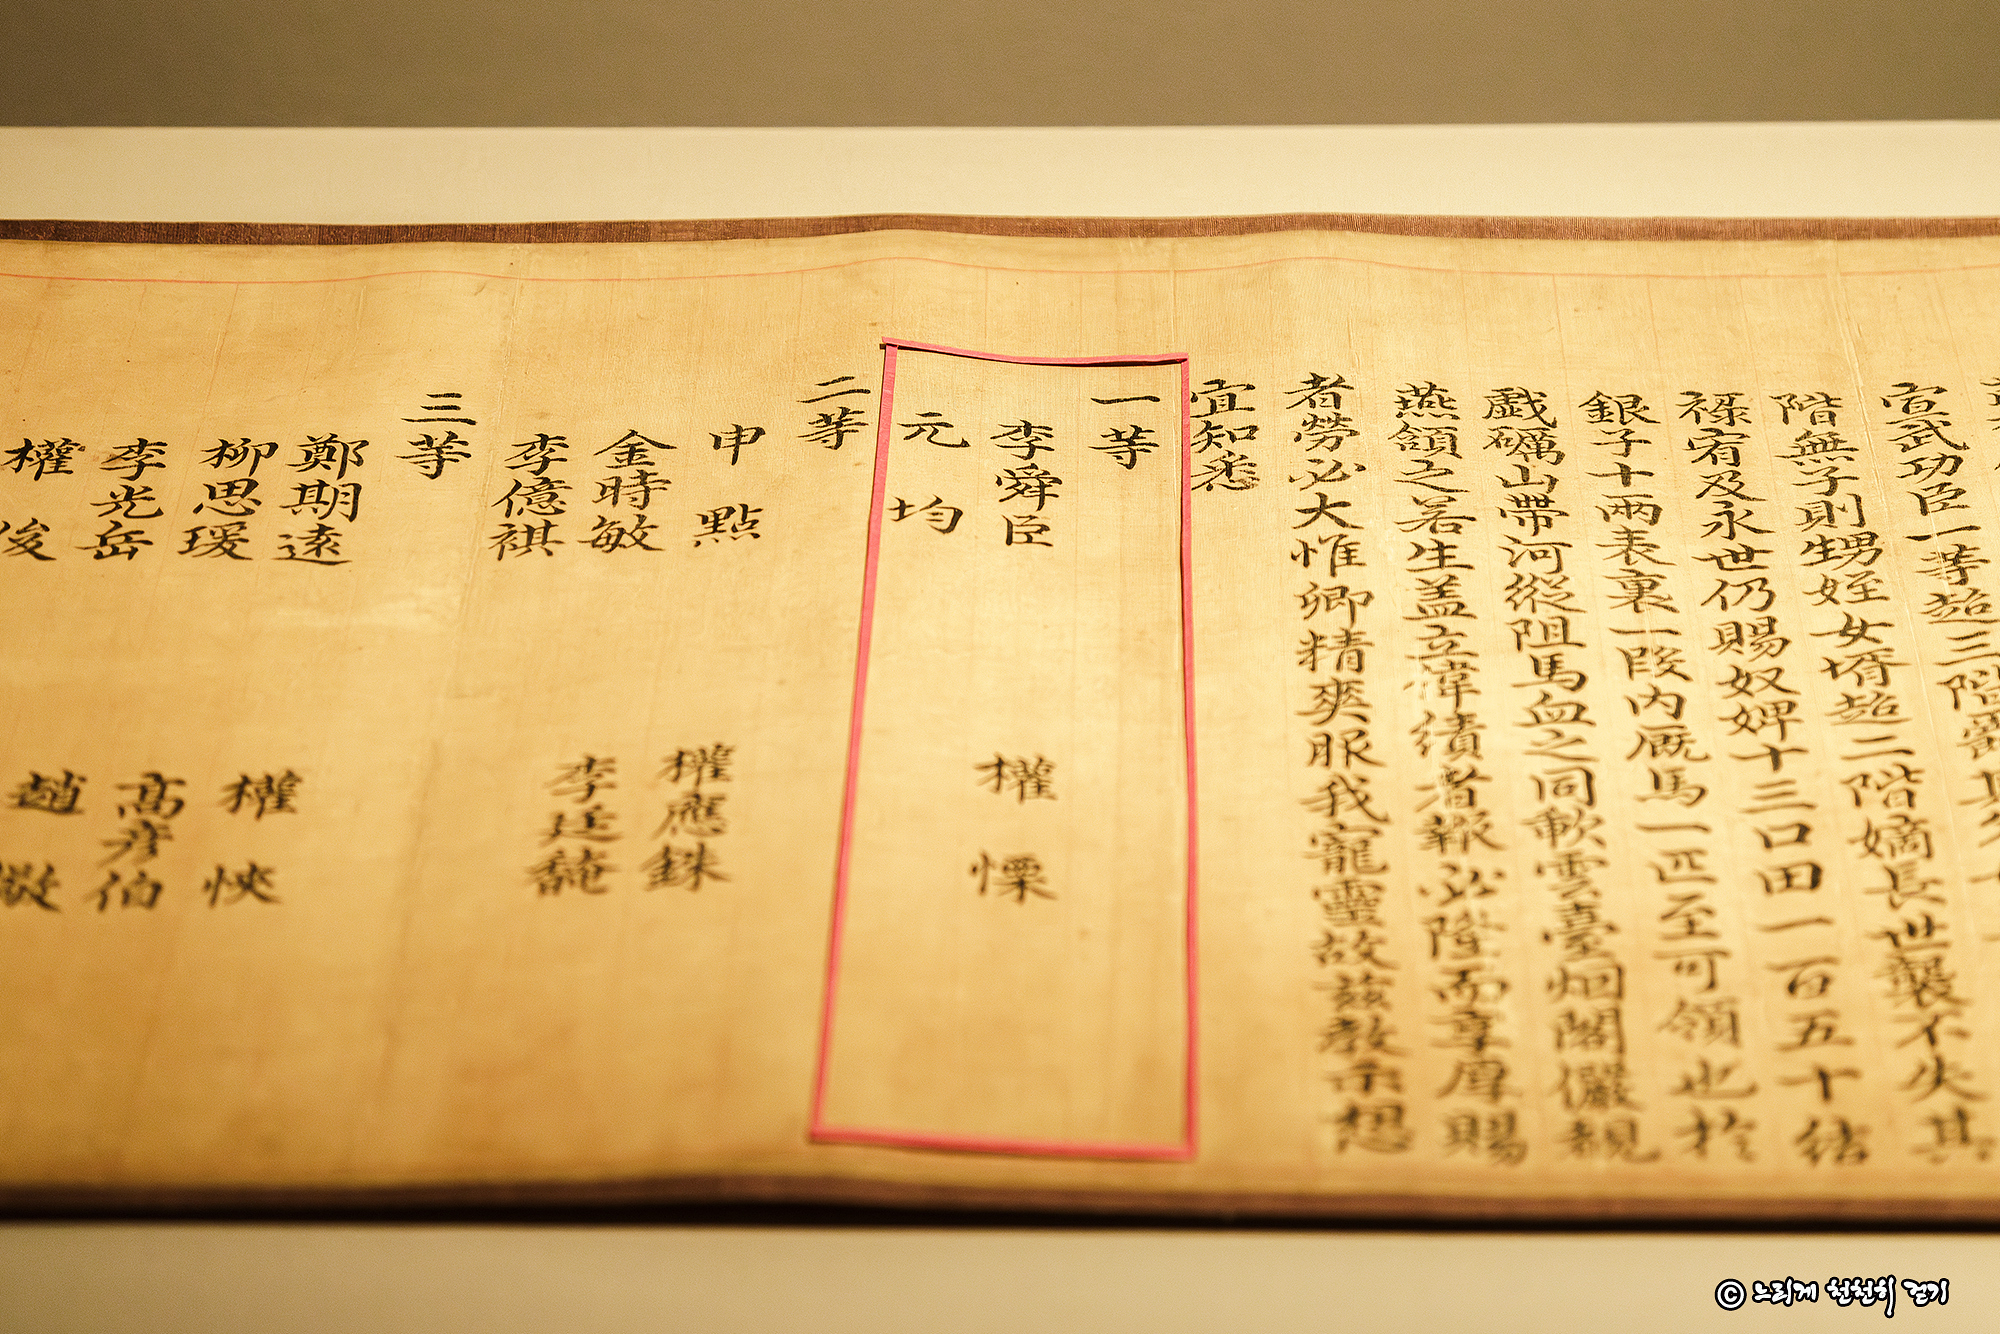 宣武功臣一等超三階爵其父
階無子則甥姪女壻超二階嫡長世襲不失其
祿宥及永世仍賜奴婢十三口田一百五十結
銀子十兩表裏一段內廐馬一匹至可領也於
戱礪山帶河縱阻馬血之同歃雲臺烟閣儼親
燕頷之若生盖立偉績者報必隆而享厚賜
者勞必大惟卿精爽服我寵靈故玆敎示想
宜知悉
一等
李舜臣 權慄
元均
二等
申點 權應銖
金時敏 李廷馣
李億祺
三等
鄭期遠 權悏
柳思瑗 高彦伯
李光岳 趙儆
權俊
© 느리게 천천히 걷기